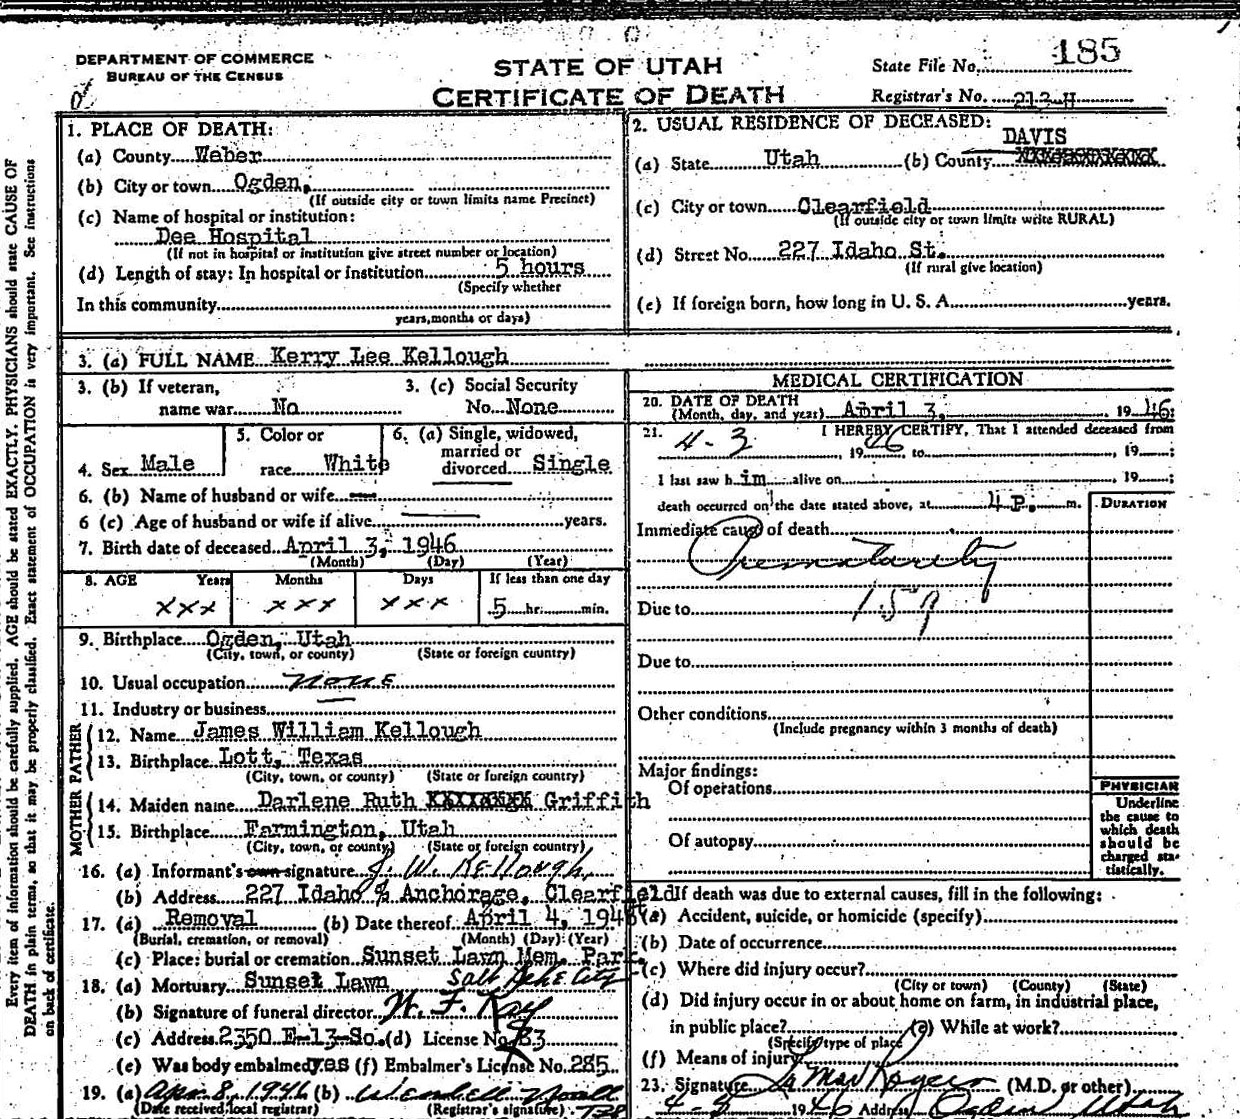 DEPARTMENT OF COMMERCE
BUREAU OF THE CENSUS
STATE OF UTAH
CERTIFICATE OF DEATH
State File No. 185
Registrar's No. 213-H
Every item of information should be carefully supplied. AGE should be stated EXACTLY. PHYSICIANS should state CAUSE OF
DEATH in plain terms, so that it may be properly classified. Exact statement of OCCUPATION is very important. See instructions
on back of certificate.
1. PLACE OF DEATH:
(a) County Weber
(b) City or town Ogden,
(If outside city or town limits name Precinct)
(c) Name of hospital or institution:
Dee Hospital
(If not in hospital or institution give street number or location)
(d) Length of stay: In hospital or institution 5 hours
(Specify whether
In this community
years, months or days)
2. USUAL RESIDENCE OF DECEASED:
DAVIS
(a) State Utah (b) County
(c) City or town Clearfield
(If outside city or town limits write RURAL)
(d) Street No. 227 Idaho St.
(If rural give location)
(e) If foreign born, how long in U. S. A. years.
3. (a) FULL NAME Kerry Lee Kellough
3. (b) If veteran, name war No
3. (c) Social Security No. None
4. Sex Male
5. Color or race White
6. (a) Single, widowed, married or divorced Single
6. (b) Name of husband or wife
6 (c) Age of husband or wife if alive years.
7. Birth date of deceased April 3, 1946
(Month) (Day) (Year)
8. AGE Years Months Days If less than one day
xxx xxx xxx 5 hr. min.
9. Birthplace Ogden, Utah
(City, town, or county) (State or foreign country)
10. Usual occupation none
11. Industry or business
FATHER
12. Name James William Kellough
13. Birthplace Lott, Texas
(City, town, or county) (State or foreign country)
MOTHER
14. Maiden name Darlene Ruth Griffith
15. Birthplace Farmington, Utah
(City, town, or county) (State or foreign country)
16. (a) Informant's own signature J. W. Kellough
(b) Address 227 Idaho % Anchorage, Clearfield
17. (a) Removal (b) Date thereof April 4, 1946
(Burial, cremation, or removal) (Month) (Day) (Year)
(c) Place: burial or cremation Sunset Lawn Mem. Park.
Salt Lake City
18. (a) Mortuary Sunset Lawn
(b) Signature of funeral director W. F. Kay
(c) Address 2350 E-13-So. (d) License No. 83
(e) Was body embalmed yes (f) Embalmer's License No. 285
19. (a) Apr. 8, 1946 (b) Wendell
(Date received local registrar) (Registrar's signature)
MEDICAL CERTIFICATION
20. DATE OF DEATH
(Month, day, and year) April 3, 1946
21. I HEREBY CERTIFY, That I attended deceased from
4-3, 1946 to, 19 ;
I last saw h im alive on, 19 ;
death occurred on the date stated above, at 4 P. m.
DURATION
Immediate cause of death
Prematurity
Due to 159
Due to
Other conditions
(Include pregnancy within 3 months of death)
Major findings:
Of operations
Of autopsy
PHYSICIAN
Underline
the cause to
which death
should be
charged sta-
tistically.
If death was due to external causes, fill in the following:
(a) Accident, suicide, or homicide (specify)
(b) Date of occurrence
(c) Where did injury occur?
(City or town) (County) (State)
(d) Did injury occur in or about home on farm, in industrial place,
in public place? (e) While at work?
(Specify type of place)
(f) Means of injury
23. Signature (M.D. or other)
4-8 1946 Address Ogden Utah